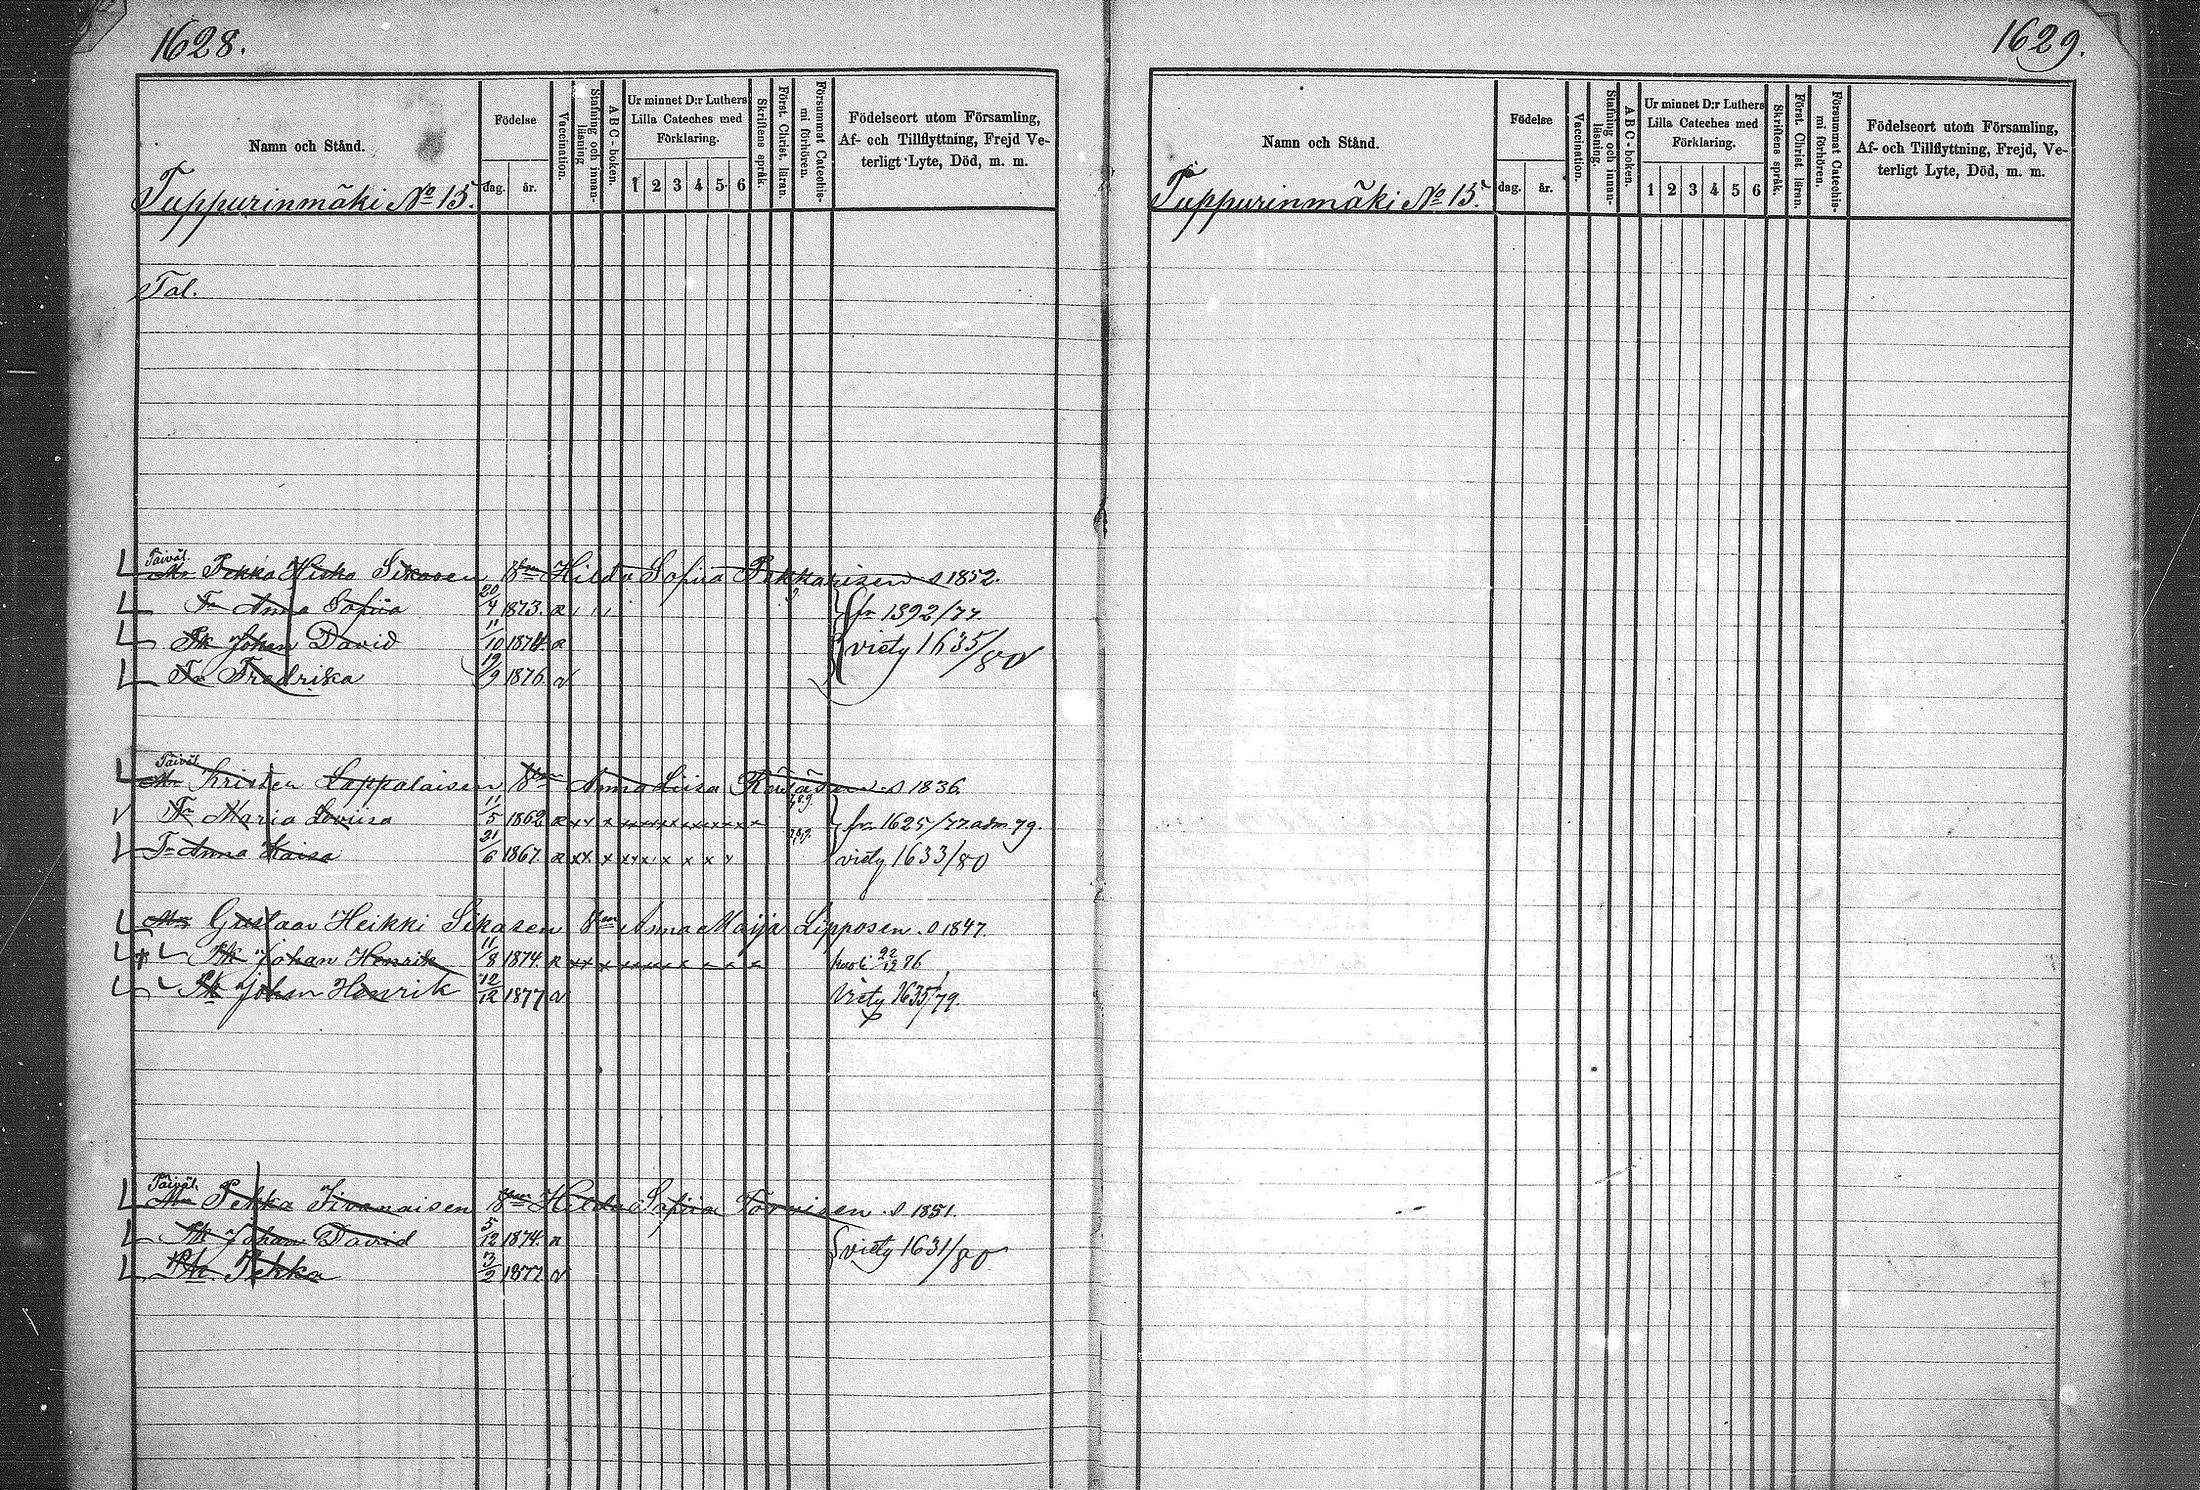 1628.
Namn och Stånd.
Födelse
dag.
år.
Vaccination.
Stafning och innan-läsning
ABC-boken.
Ur minnet D:r Luthers
Lilla Cateches med
Förklaring.
1 2 3 4 5 6
Skriftens språk.
Först. Christ. läran.
Försummat Catechis-mi förhören.
Födelseort utom Församling,
Af- och Tillflyttning, Frejd Ve-
terligt Lyte, Död, m. m.
Tuppurinmäki No 15.
Tal.
Päiväl.
Mr Pekka Sikasen Hilda Sofiia Pekkarisen s 1852.
Tr Anna Sofiia 20/4 1873. fr 1392/77.
Pk Johan David 11/10 1874. viety 1635/80
Tr Fredrika 19/9 1876.
Päiväl.
Mr Kristen Lappalaisen Anna Liisa s 1836.
Tr Maria Loviisa 11/5 1862 fr 1625/77. adm. 79.
Tr Anna Kaisa 21/6 1867. viety 1633/80
Mr Gustaav Heikki Sikasen Anna Maija Lipposen. s 1847.
Pk Johan Henrik 11/8 1874. kuoli 22/12 76
Pk Johan Henrik 12/12 1877 Viety 1635/79.
Päiväl.
Mr Pekka Iivanaisen Hilda Sofiia Torvisen s 1851.
Pk Johan David 5/12 1874. viety 1631/80
Pk Pekka 3/2 1877.
1629.
Namn och Stånd.
Födelse
dag.
år.
Vaccination.
Stafning och innan-läsning.
ABC-boken.
Ur minnet D:r Luthers
Lilla Cateches med
Förklaring.
1 2 3 4 5 6
Skriftens språk.
Först. Christ. läran.
Försummat Catechis-mi förhören.
Födelseort utom Församling,
Af- och Tillflyttning, Frejd, Ve-
terligt Lyte, Död, m. m.
Tuppurinmäki No 15.